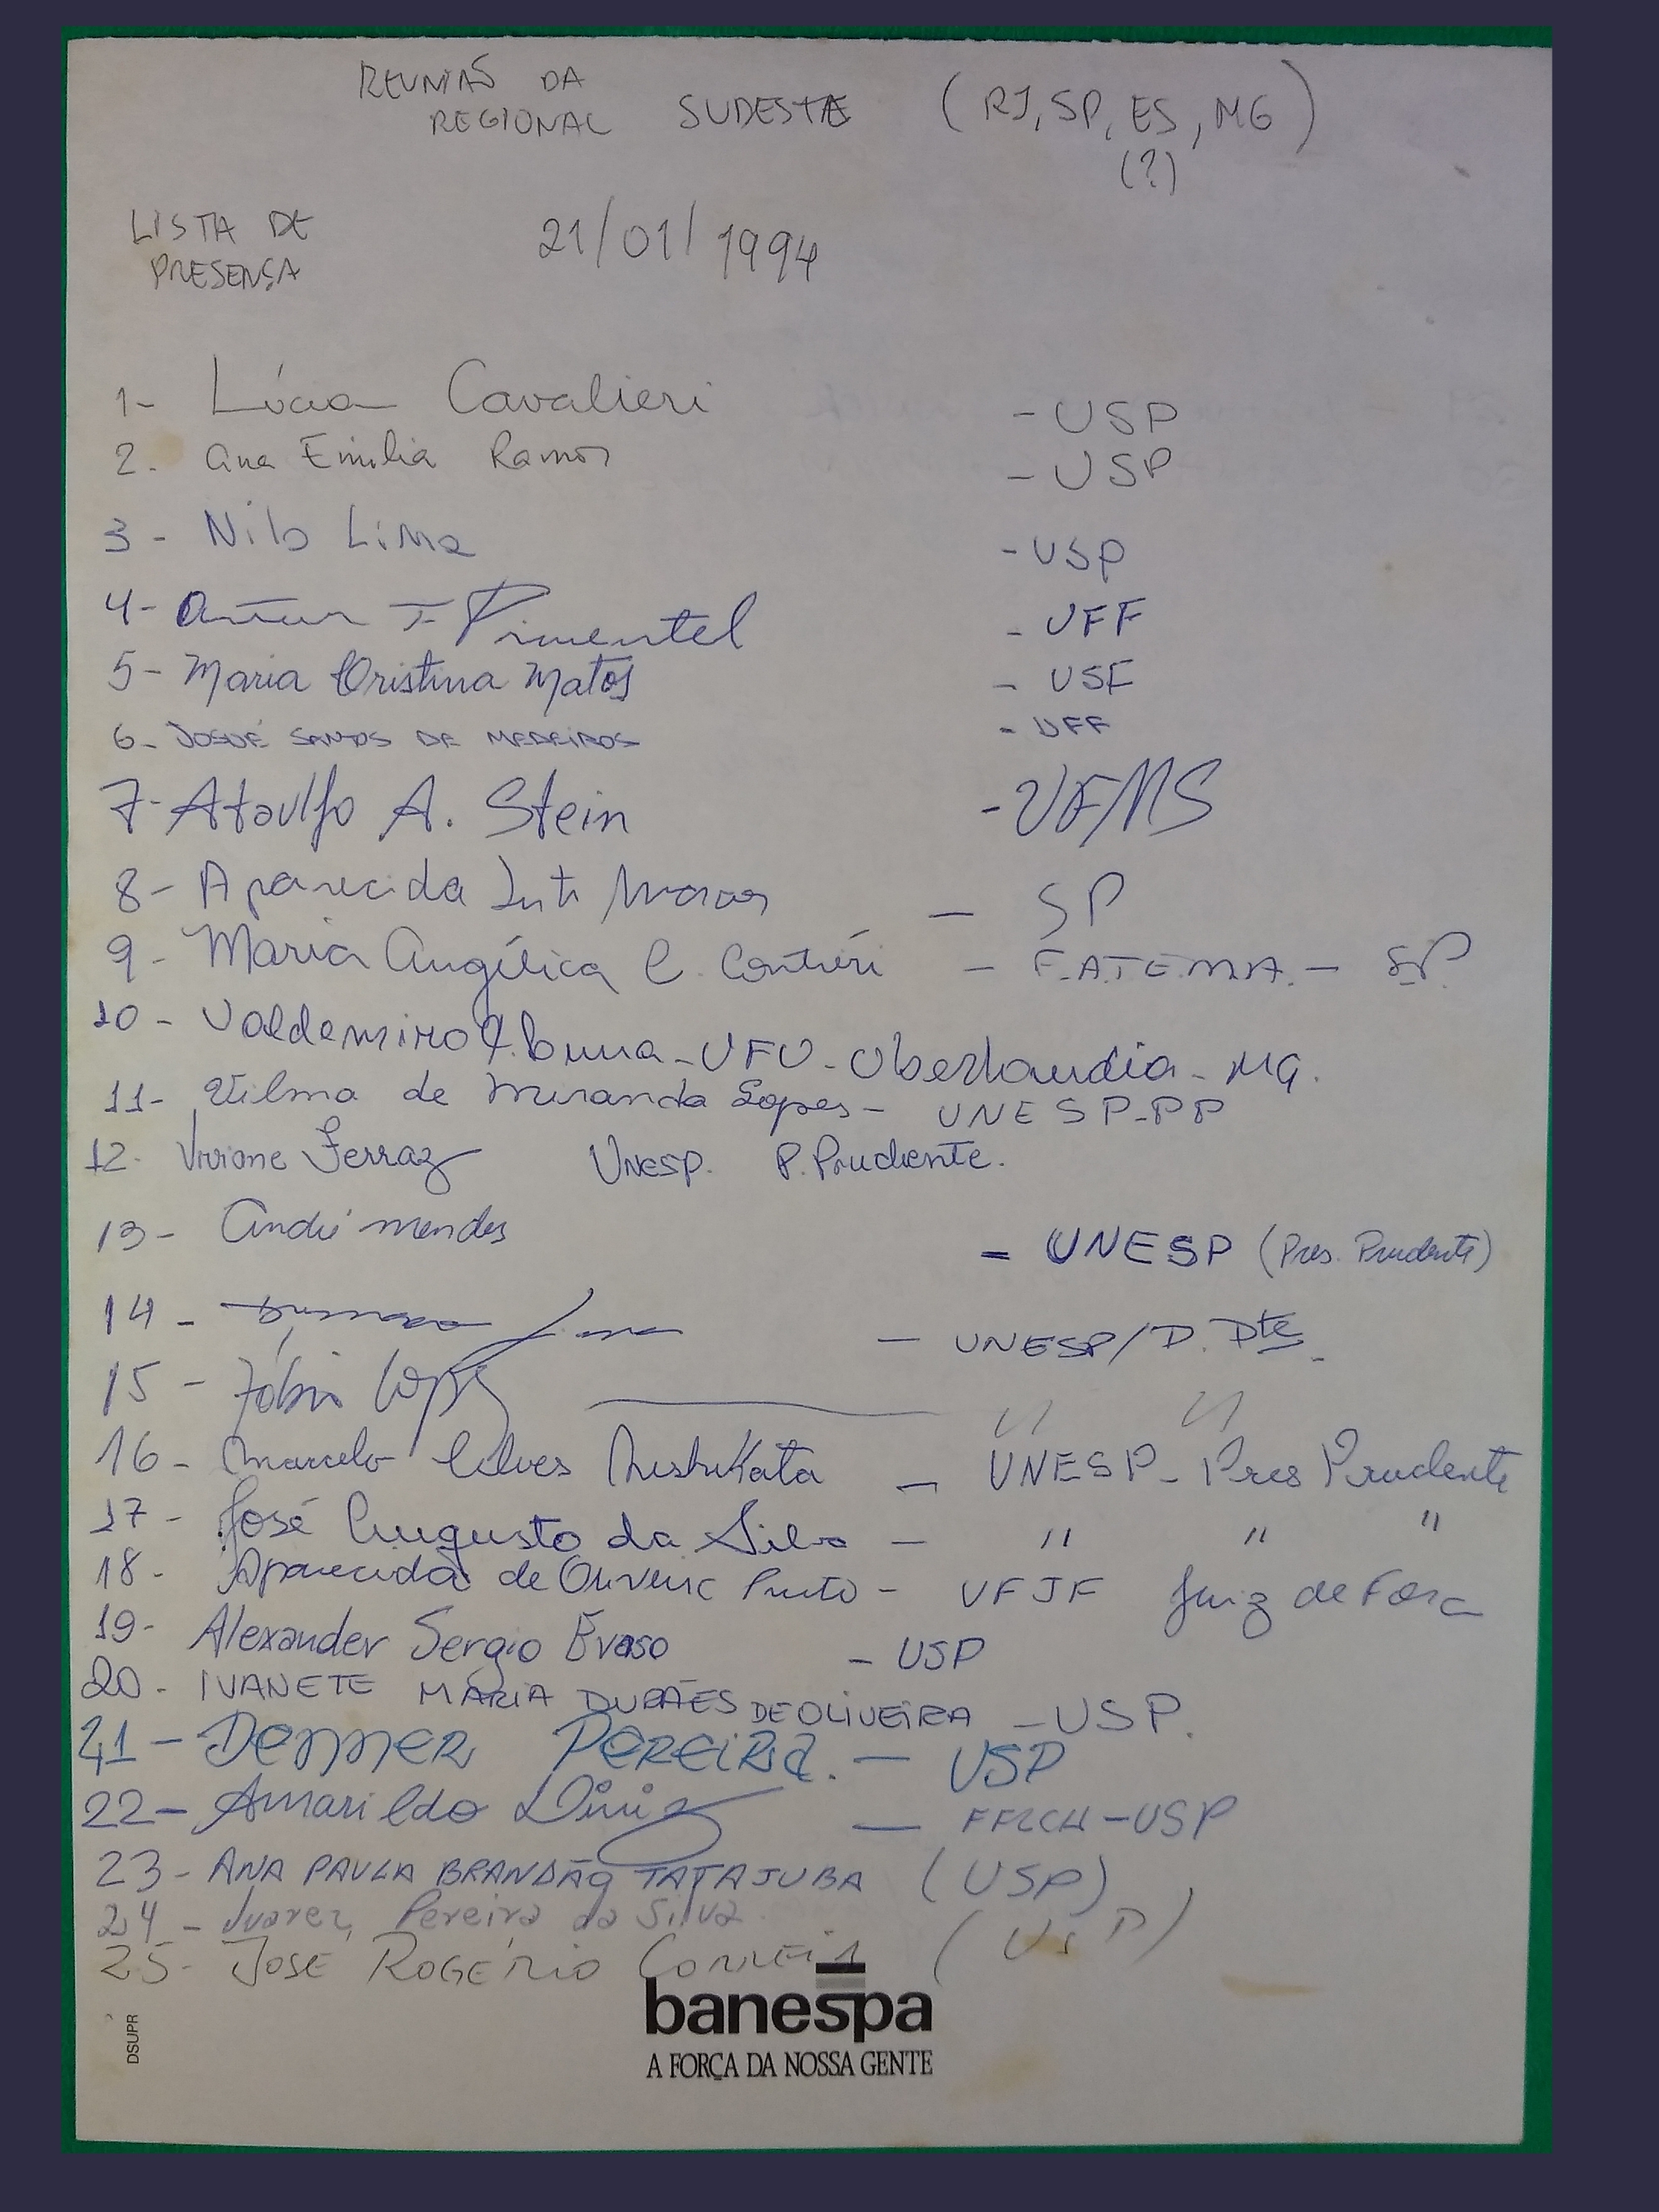 REUNIÃO DA
REGIONAL SUDESTE (RJ, SP, ES, MG)
(?)
LISTA DE
PRESENÇA
21/01/1994
1- Lúcia Cavalieri - USP
2. Ana Emilia Ramos - USP
3 - Nilo Lima - USP
4- Artur Pimentel - UFF
5- Maria Cristina Matos - USF
6- JOSUÉ SANTOS DE MEDEIROS - UFF
7- Ataulfo A. Stein - UFMS
8- Aparecida - SP
9 - Maria Angélica C. Contiéri - F.A.T.E.M.A. - SP.
10 - Valdemiro - UFU - Uberlaudia - MG.
11- Vilma de Miranda Lopes - UNESP-PP
12. Viviane Ferraz Unesp. P. Prudente.
13- André mendes - UNESP (Pres. Prudente)
14 - - UNESP/P. Pte
15 - Fábio Lopes " "
16 - Marcelo Alves - UNESP - Pres Prudente
17 - José Augusto da Silva - " " "
18 - Aparecida de Oliveira - UFJF Juiz de Fora
19- Alexander Sergio Evaso - USP
20- IVANETE MARIA DURÃES DE OLIVEIRA - USP.
21- DENNER PEREIRA. - USP
22- Amarildo Diniz - FFLCH-USP
23- ANA PAULA BRANDÃO TATAJUBA (USP)
24 - Juarez Pereira da Silva
25- JOSÉ ROGÉRIO CORREIA (USP)
banespa
A FORÇA DA NOSSA GENTE
DSUPR